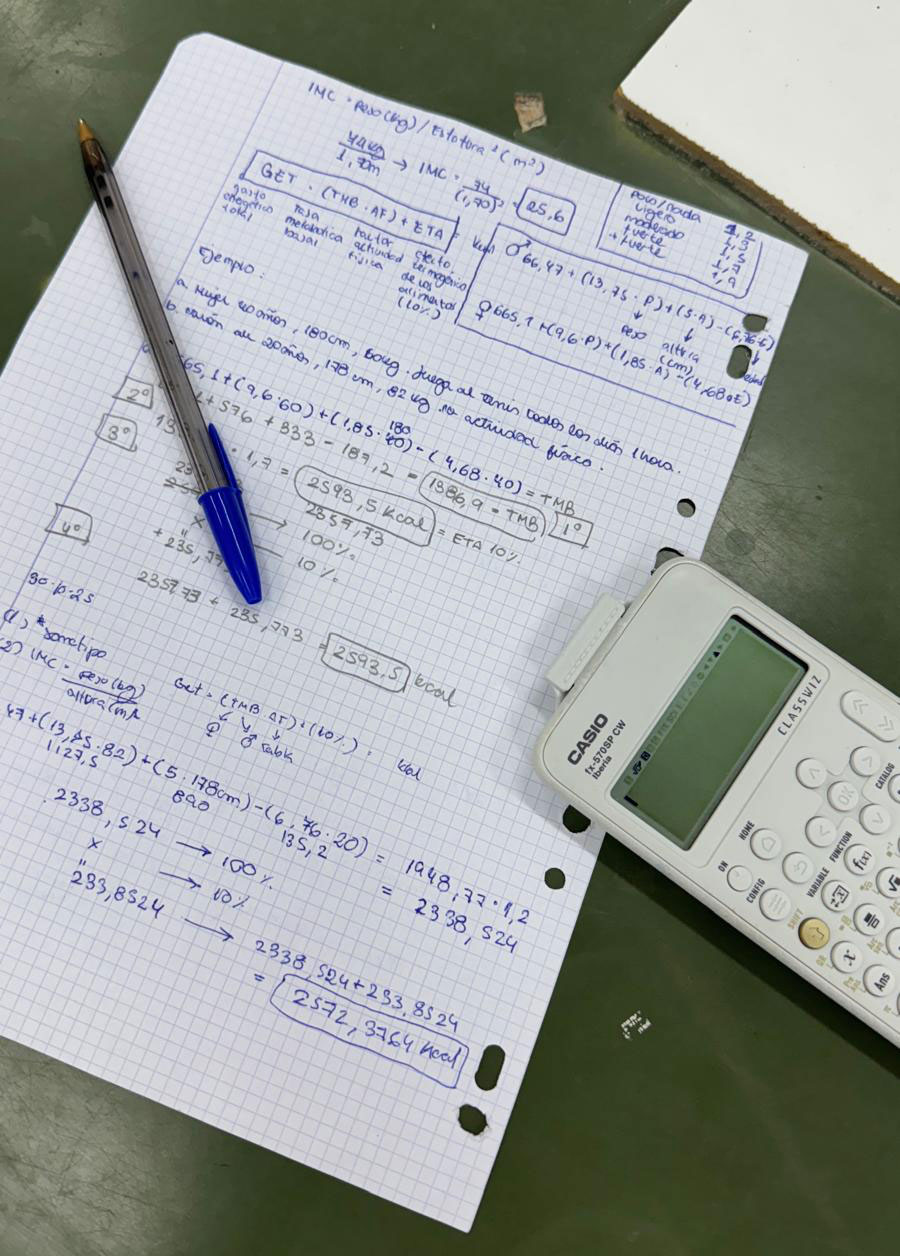 IMC = peso(kg) / Estatura² (m²)
74kg
1,70m → IMC = 74
(1,70)² = 25,6
GET = (TMB · AF) + ETA = kcal
gasto
energético
total
tasa
metabólica
basal
factor
actividad
física
efecto
termogénico
de los
alimentos
(10%)
poco/nada 1,2
ligero 1,3
moderado 1,5
fuerte 1,7
+ fuerte 1,9
♂ 66,47 + (13,75 · P) + (5·A) - (6,76·E)
peso altura edad
(cm)
♀ 665,1 + (9,6·P) + (1,85·A) - (4,68·E)
Ejemplo:
a. Mujer 40 años, 180cm, 60kg. Juega al tenis todos los días 1 hora.
b. varón de 20 años, 178 cm, 82 kg no actividad física.
65,1 + (9,6·60) + (1,85·180) - (4,68·40) = TMB
2º
+ 576 + 333 - 187,2 = 1386,9 = TMB 1º
3º
· 1,7 = 2593,5 kcal = ETA 10%
2357,73
x → 100%
4º
+ 235,77 10%
2357,73 + 235,773 = 2593,5 kcal
90·p·25
(1) * Somatipo
(2) IMC = peso(kg)
altura(m)²
Get = (TMB·AF) + (10%) = kcal
♀ ♂ tabla
47 + (13,75·82) + (5·178cm) - (6,76·20) = 1948,77·1,2
1127,5 890 135,2
= 2338,524
2338,524 → 100%
x → 10%
"
233,8524 → 2338,524 + 233,8524
= 2572,3764 kcal
CASIO
fx-570SP CW
Iberia
CLASSWIZ
HOME
ON
CONFIG
OK
CATALOG
FUNCTION
VARIABLE
f(x)
SHIFT
x
Ans